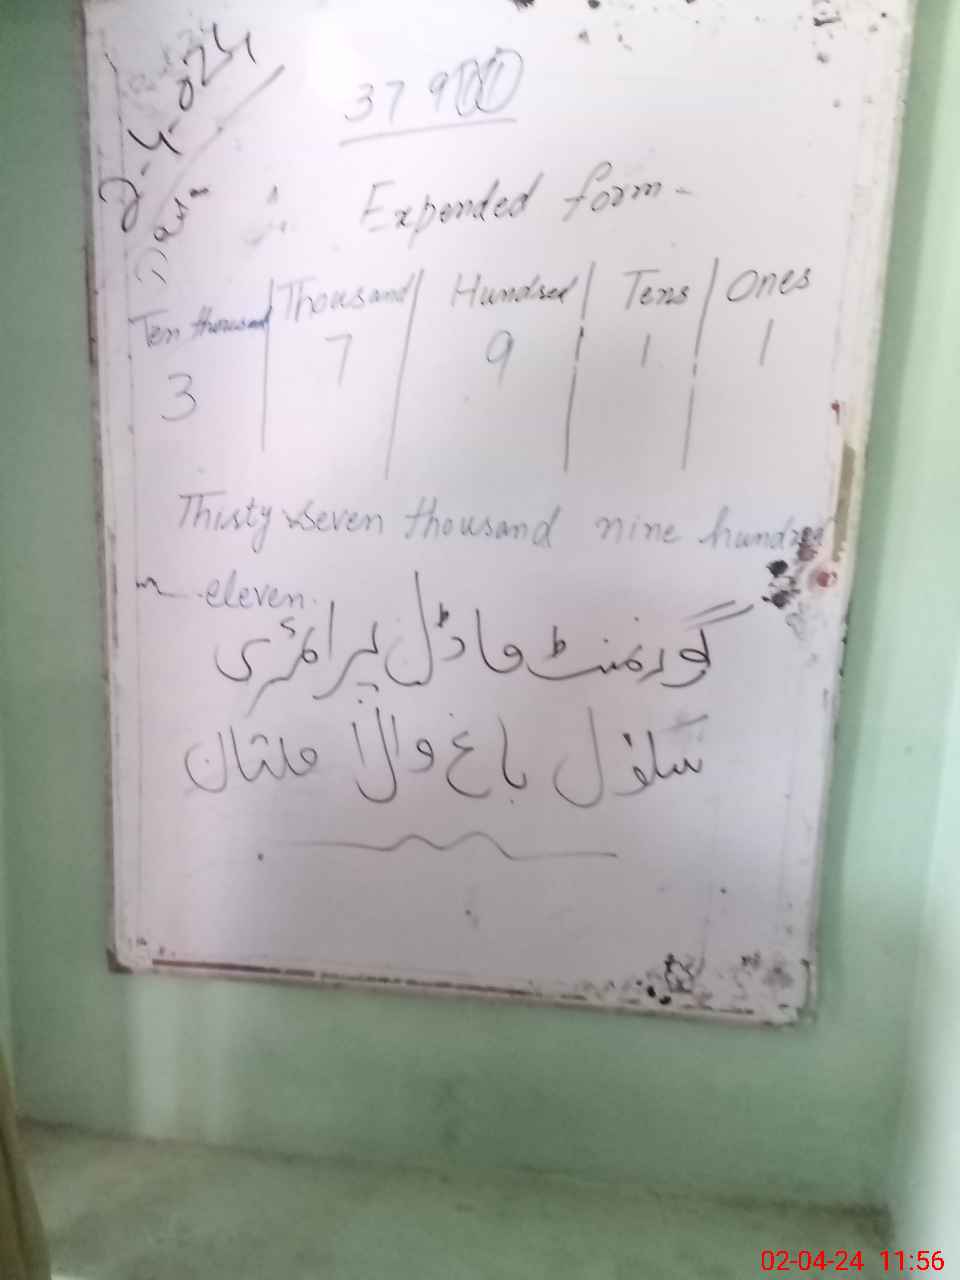 2-4-024
37 911
Expended form-
Ten thousand | Thousand | Hundred | Tens | Ones
3 | 7 | 9 | 1 | 1
Thirty seven thousand nine hundred
eleven.
گورمنٹ ماڈل پرائمری
سکول باغ والا ملتان
02-04-24 11:56